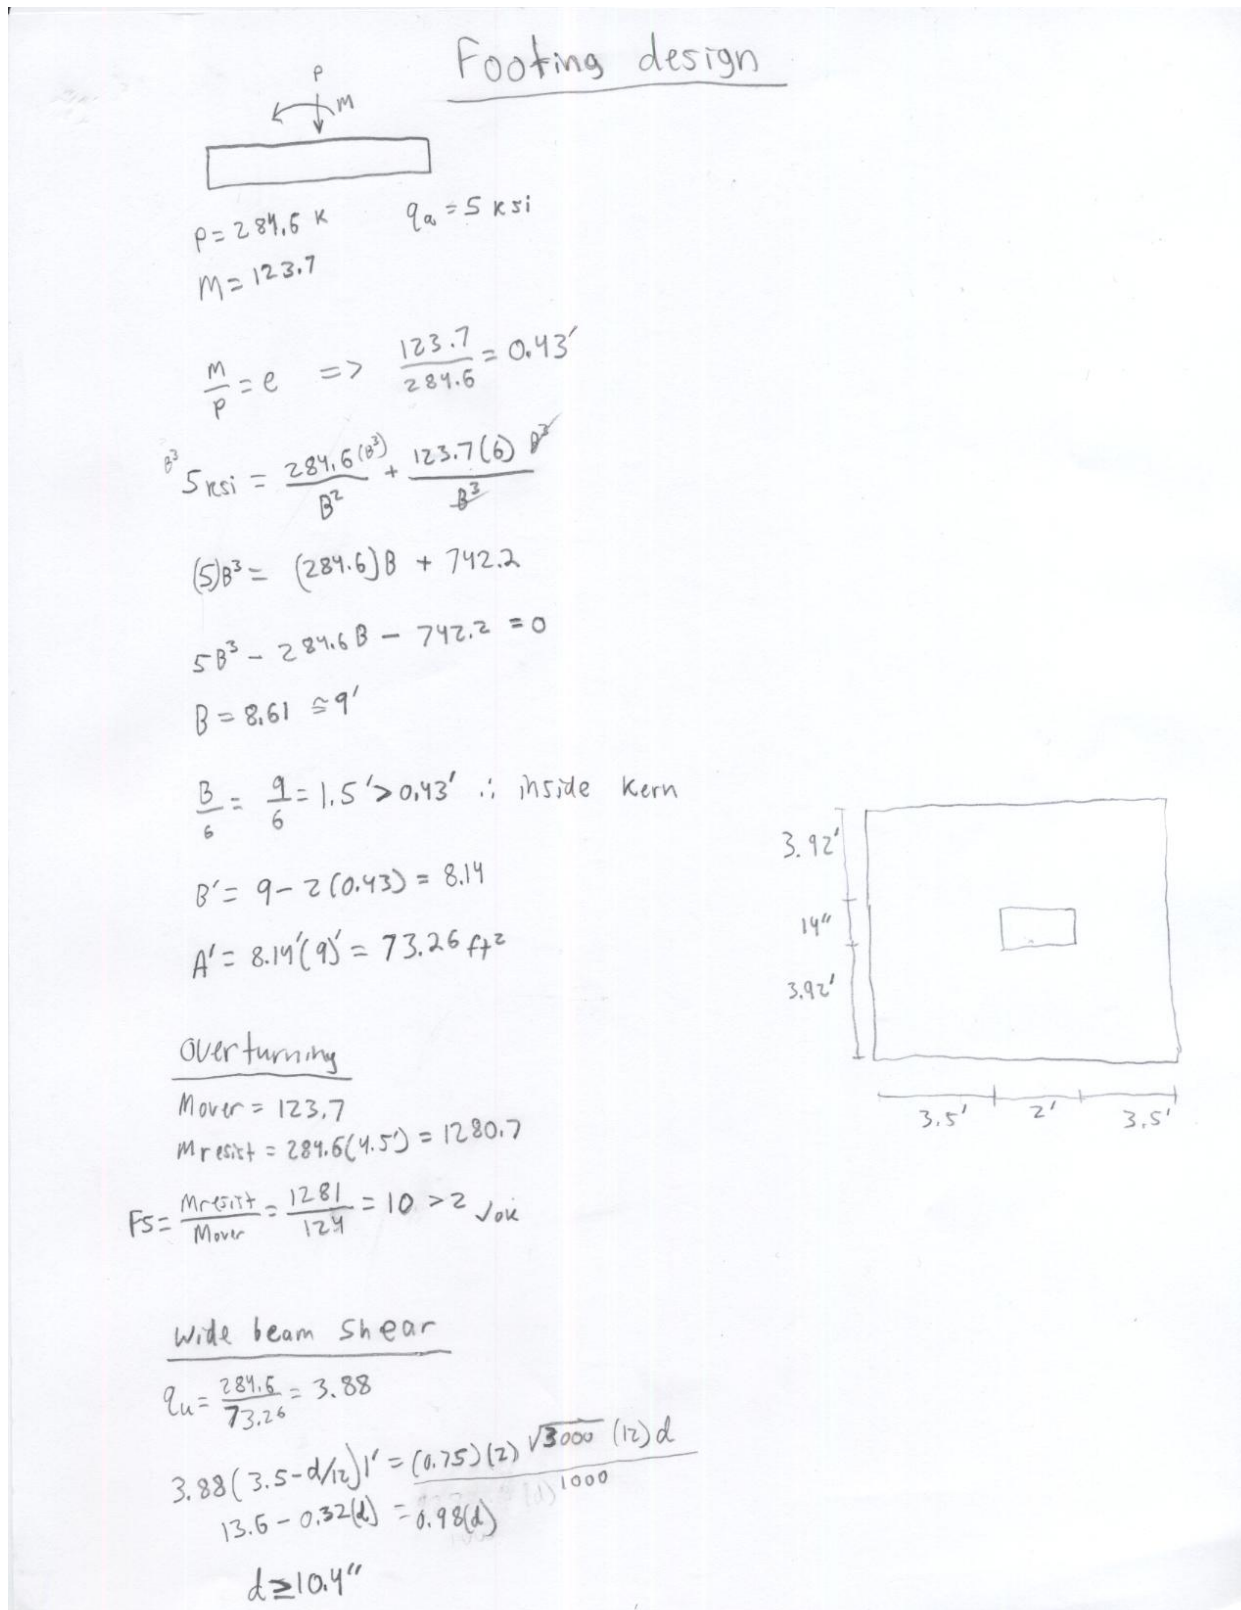 Footing design
P
M
P = 284.6 K    qa = 5 ksi
M = 123.7
M/P = e => 123.7/284.6 = 0.43'
B³ 5 ksi = 284.6(B³)/B² + 123.7(6) B³/B³
(5)B³ = (284.6)B + 742.2
5B³ - 284.6B - 742.2 = 0
B = 8.61 ≅ 9'
B/6 = 9/6 = 1.5' > 0.43' ∴ inside kern
B' = 9 - 2(0.43) = 8.14
A' = 8.14'(9)' = 73.26 ft²
3.92'
14"
3.92'
3.5' 2' 3.5'
Overturning
Mover = 123.7
Mresist = 284.6(4.5') = 1280.7
FS = Mresist/Mover = 1281/124 = 10 > 2 √ok
Wide beam shear
qu = 284.6/73.26 = 3.88
3.88(3.5-d/12)1' = (0.75)(2)√3000 (12)d/1000
13.6 - 0.32(d) = 0.98(d)
d ≥ 10.4"